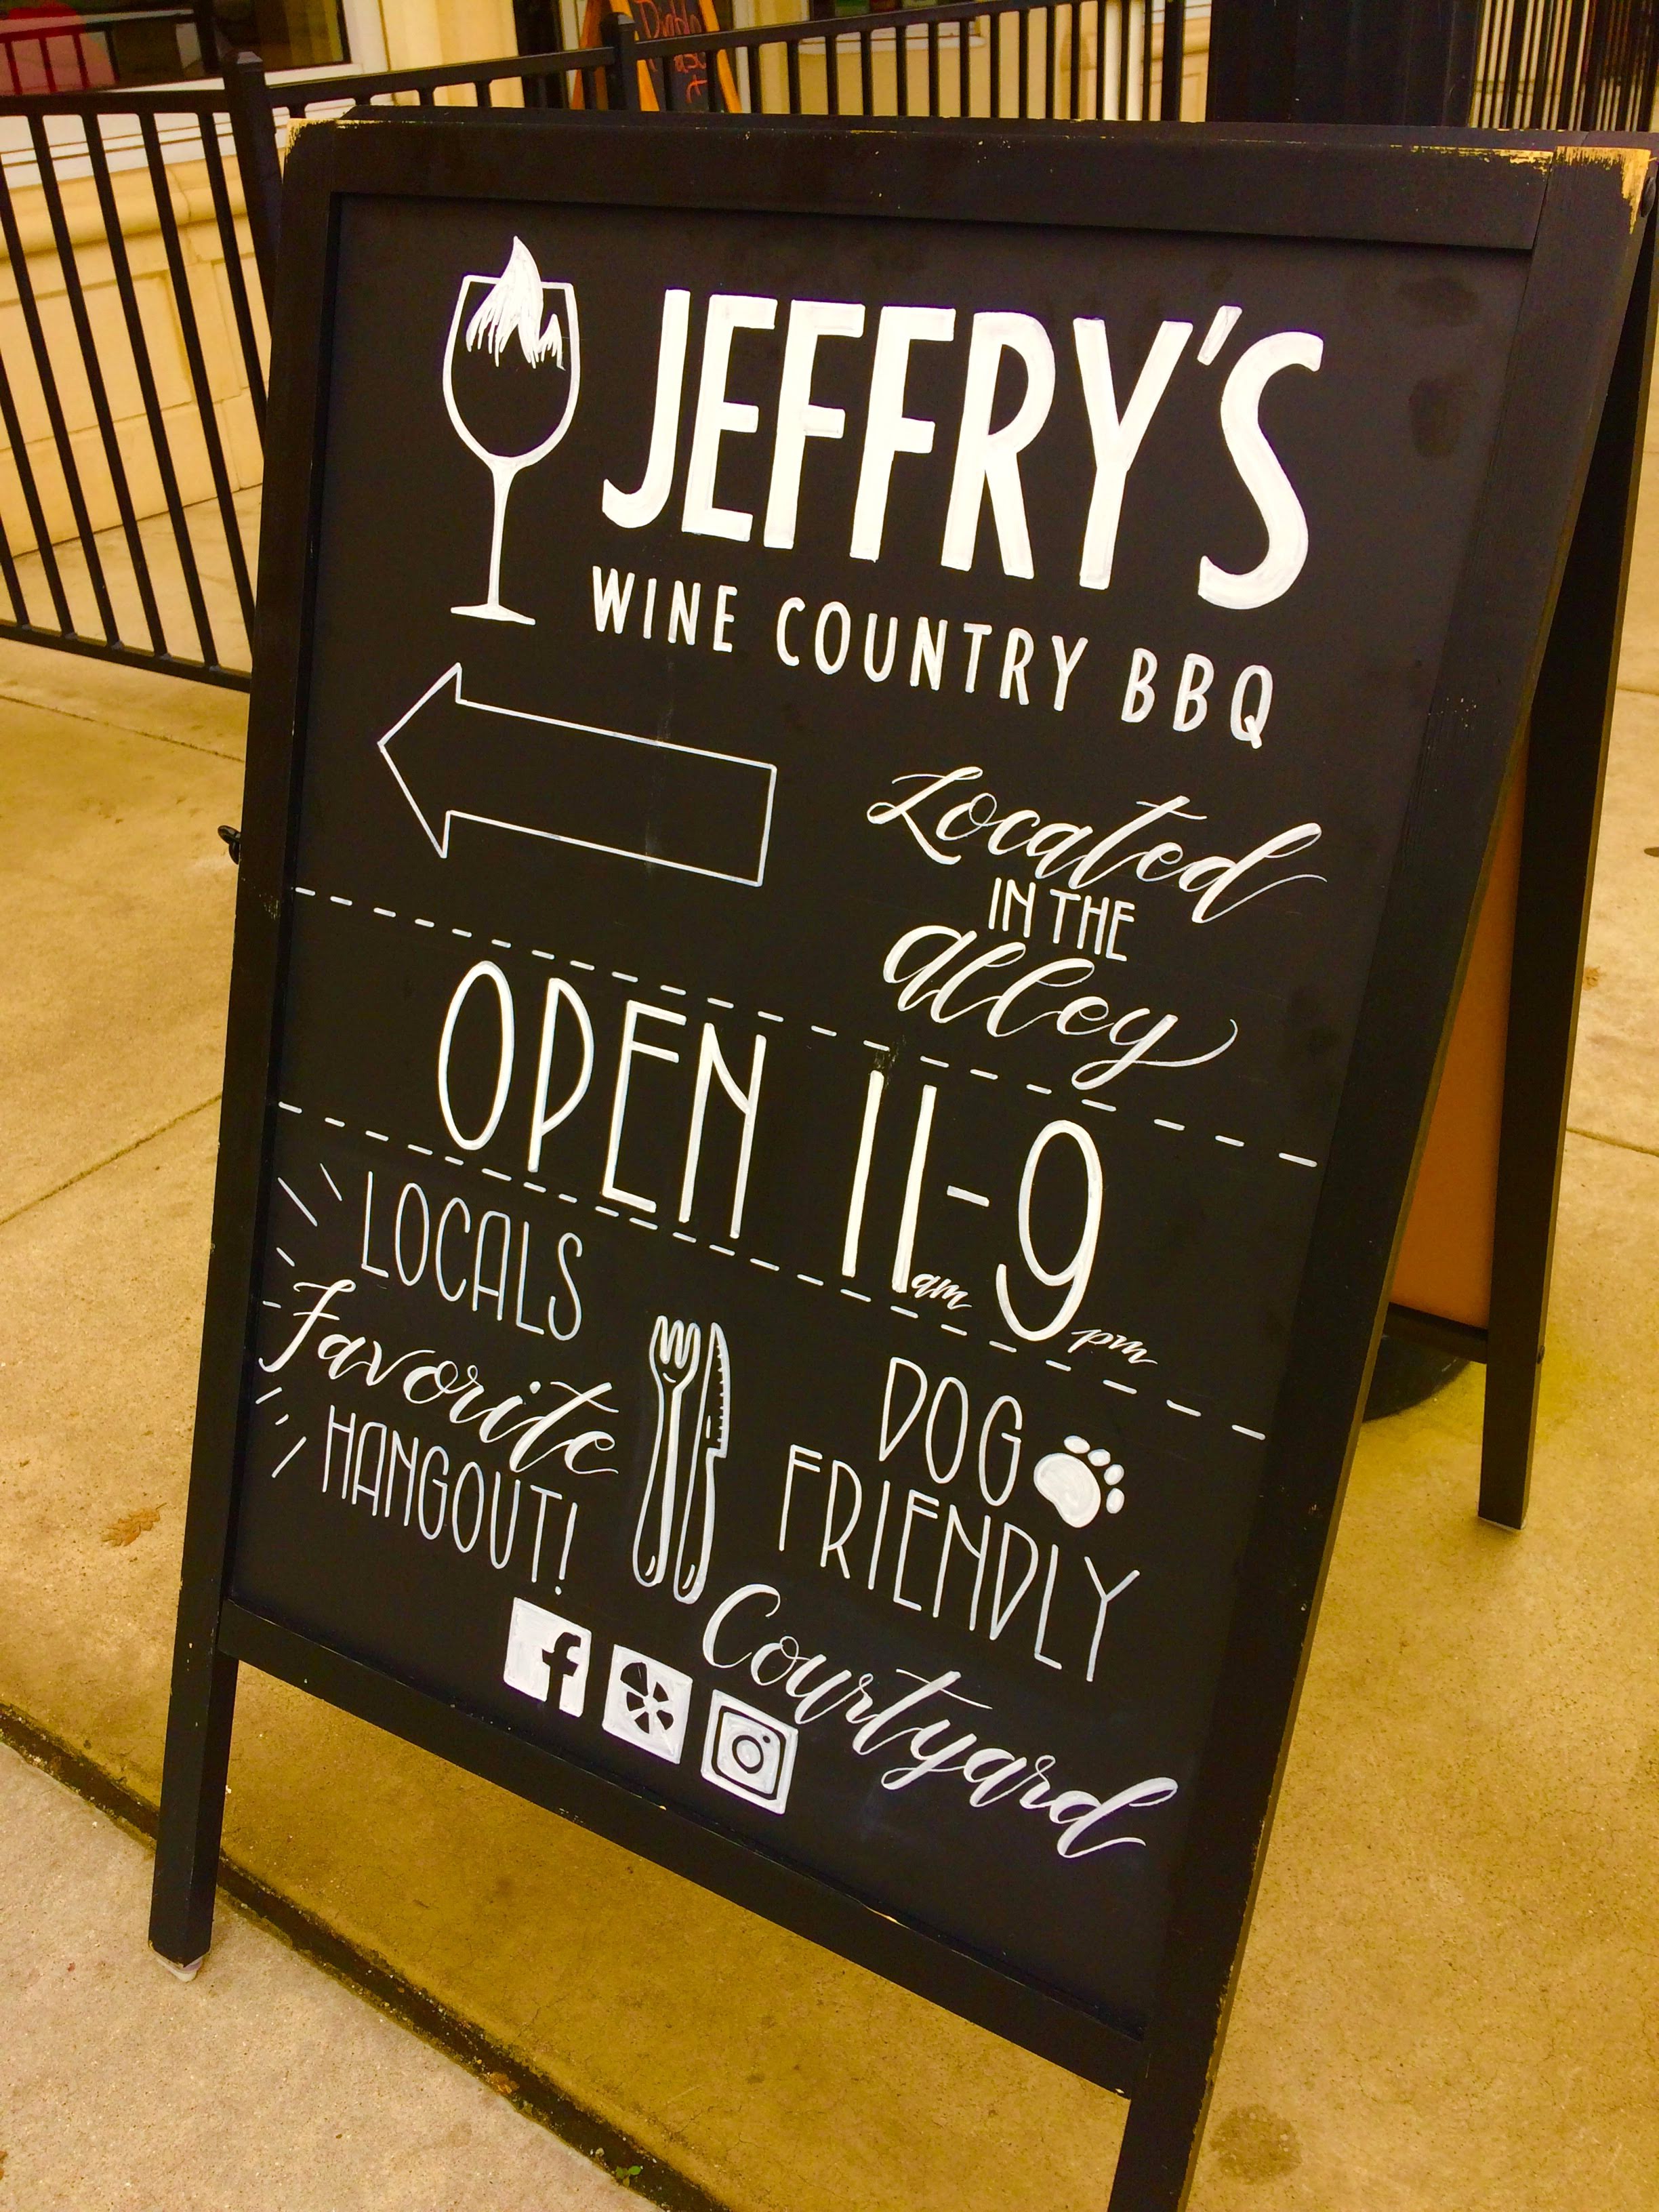 JEFFRY'S
WINE COUNTRY BBQ
Located
IN THE
alley
OPEN 11am-9pm
LOCALS
Favorite
HANGOUT!
DOG
FRIENDLY
Courtyard